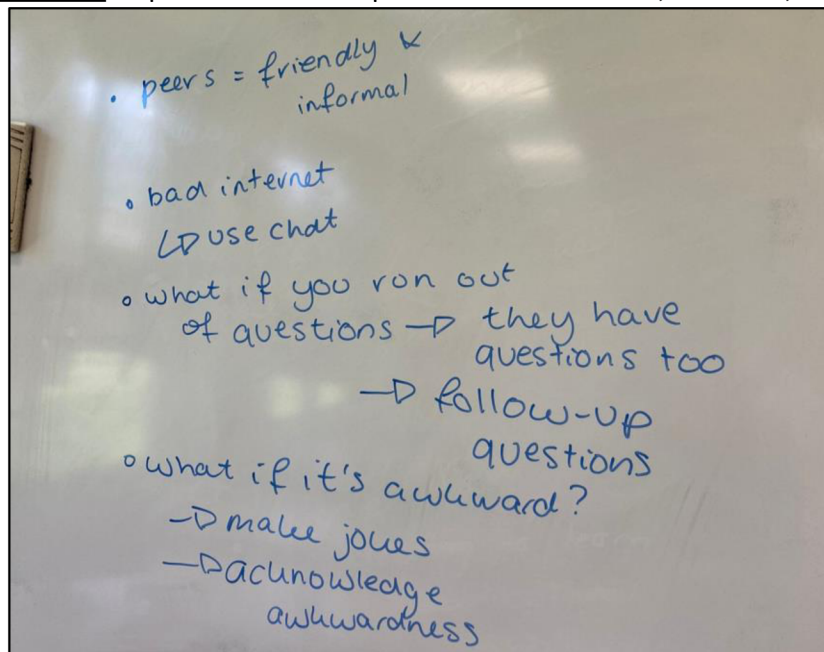 • peers = friendly &
informal
• bad internet
↳ use chat
• what if you run out
of questions → they have
questions too
→ follow-up
questions
• what if it's awkward?
→ make jokes
→ acknowledge
awkwardness